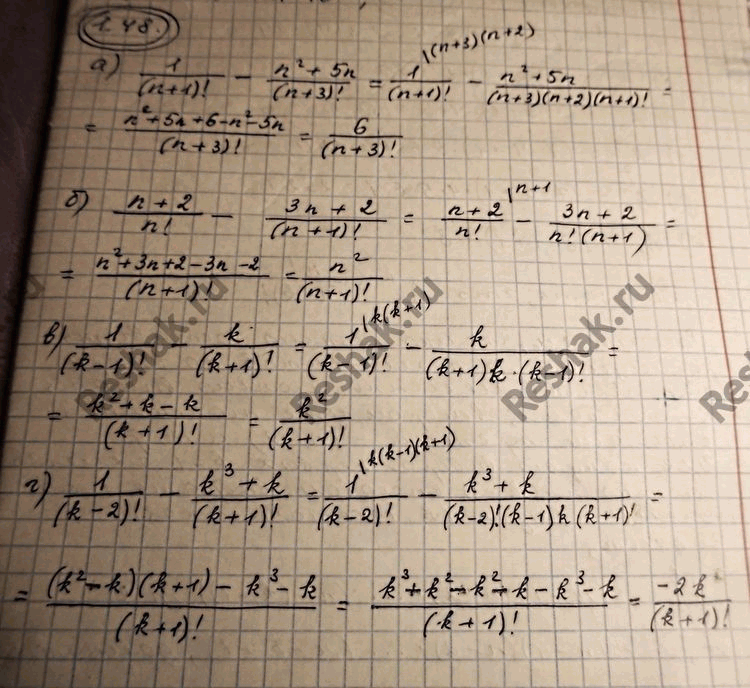 1.48.
а) 1/(n+1)! − (n²+5n)/(n+3)! = 1/(n+1)! |(n+3)(n+2) − (n²+5n)/((n+3)(n+2)(n+1)!) =
= (n²+5n+6−n²−5n)/(n+3)! = 6/(n+3)!
б) (n+2)/n! − (3n+2)/(n+1)! = (n+2)/n! |n+1 − (3n+2)/(n!(n+1)) =
= (n²+3n+2−3n−2)/(n+1)! = n²/(n+1)!
в) 1/(k−1)! − k/(k+1)! = 1/(k−1)! |k(k+1) − k/((k+1)k·(k−1)!) =
= (k²+k−k)/(k+1)! = k²/(k+1)!
г) 1/(k−2)! − (k³+k)/(k+1)! = 1/(k−2)! |k(k−1)(k+1) − (k³+k)/((k−2)!(k−1)k(k+1)!) =
= ((k²−k)(k+1)−k³−k)/(k+1)! = (k³+k²−k²−k−k³−k)/(k+1)! = −2k/(k+1)!
Reshak.ru
Reshak.ru
Reshak.ru